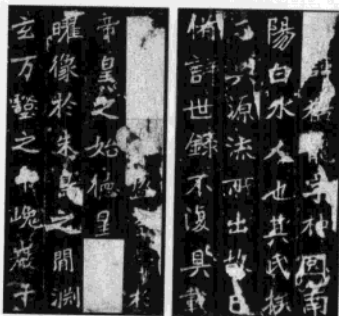 諱猛龍字神冏南
陽白水人也其氏族
分興源流所出故已
備詳世錄不復具載
於
帝皇之始德星
曜像於朱鳥之間淵
玄万壑之中巍巖千